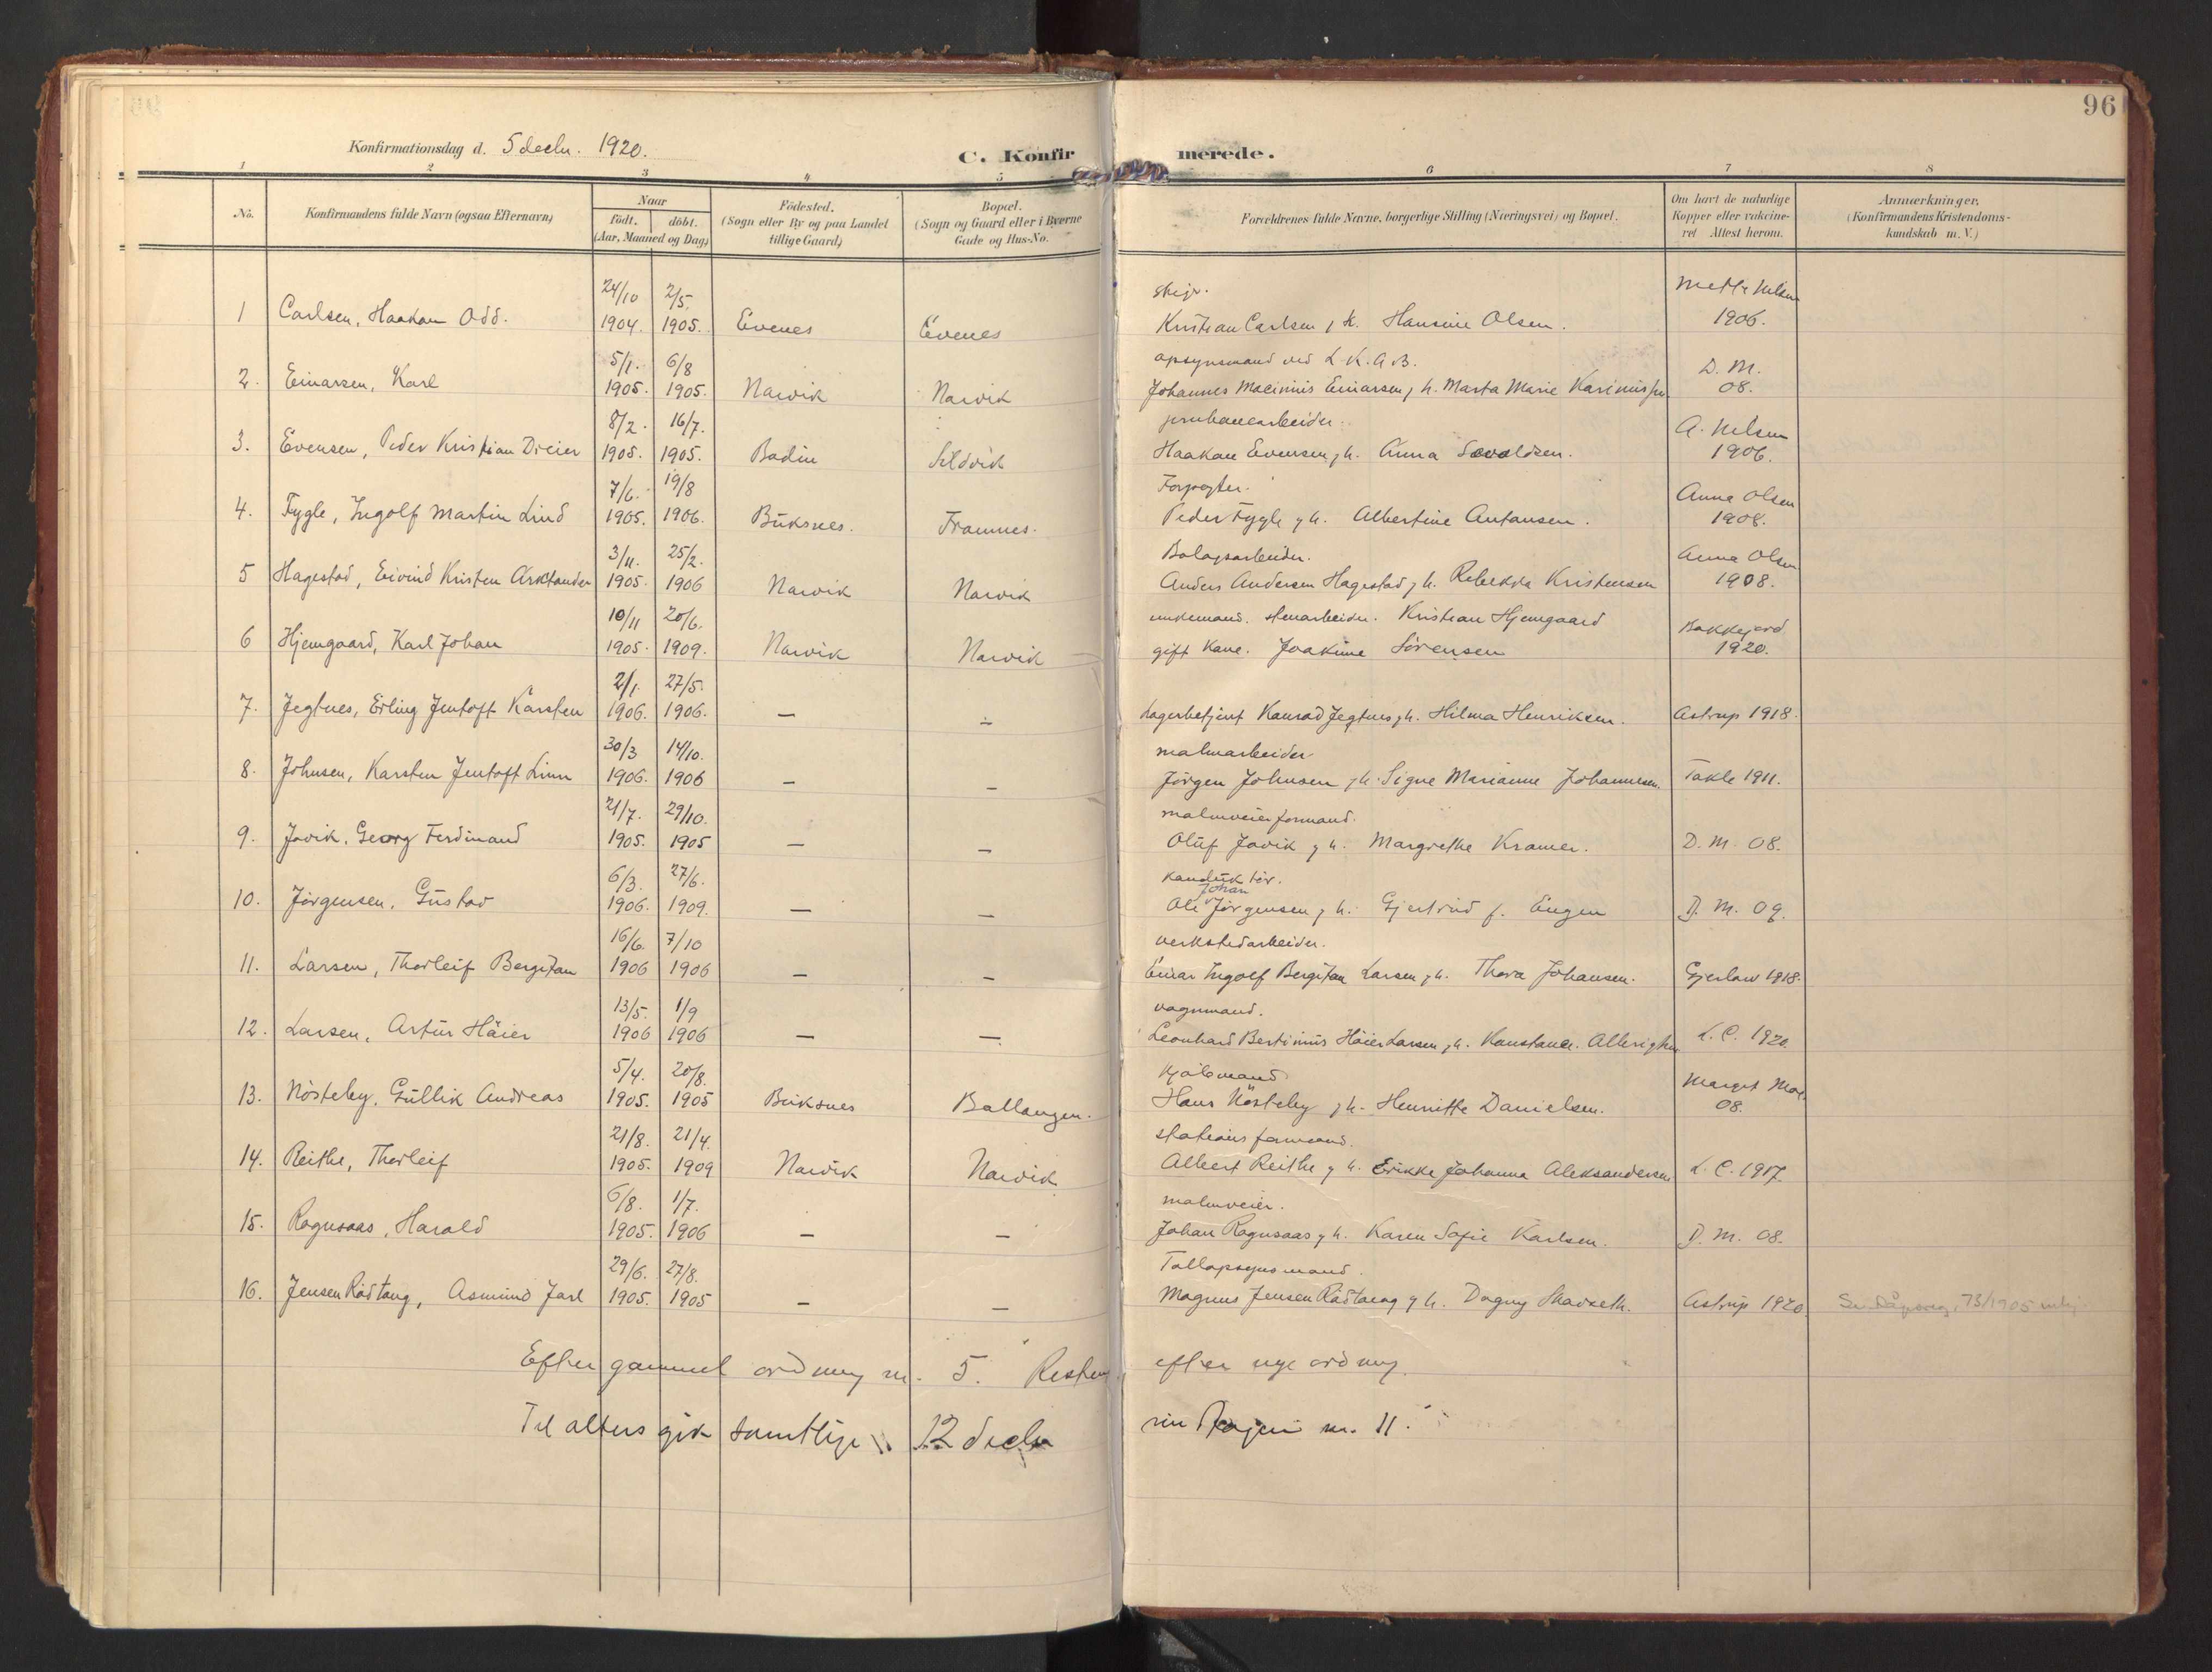 96
Konfirmationsdag d. 5 decbr. 1920.
C. Konfirmerede.
1 2 3 4 5 6 7 8
No. Konfirmandens fulde Navn (ogsaa Efternavn) Naar födt. döbt. (Aar, Maaned og Dag) Födested. (Sogn eller By og paa Landet tillige Gaard) Bopæl. (Sogn og Gaard eller i Byerne Gade og Hus-No. Forældrenes fulde Navne, borgerlige Stilling (Næringsvei) og Bopæl. Om havt de naturlige Kopper eller vakcineret Attest herom. Anmærkninger. (Konfirmandens Kristendomskundskab m. V.)
24/10 2/5. Mette Nelsen
1 Carlsen, Haakon Odd. 1904. 1905. Evenes Evenes Kristian Carlsen, h. Hansine Olsen. 1906.
5/1. 6/8 opsynsmand ved L.K.A.B. D. M.
2. Einarsen, Karl 1905. 1905. Narvik Narvik Johannes Einarsen, h. Marta Marie 08.
8/2. 16/7. A. Nelsen
3. Evensen, Peder Kristian Dreier 1905. 1905. Bodin Sildvik Haakon Evensen, h. Anna Sevaldsen. 1906.
7/6. 19/8 Forpagter. Anna Olsen
4. Fygle, Ingolf Martin Lind 1905. 1906. Buksnes. Framnes. Peder Fygle g h. Albertine Antonsen. 1908.
3/11. 25/2. Bolagsarbeider. Anna Olsen
5 Hagestad, Eivind Kristen Arktander 1905. 1906 Narvik Narvik Anders Andersen Hagestad, h. Rebekka Kristensen 1908.
10/11 20/6. enkemand. stenarbeider. Kristian Hjemgaard Bakkejord
6 Hjemgaard, Karl Johan 1905. 1909. Narvik Narvik gift Kane. Joakime Sörensen 1920.
2/1. 27/5.
7. Jegtnes, Erling Jentoft Karsten 1906. 1906. — — Lagerbetjent Konrad Jegtnes, h. Hilma Henriksen. Astrup 1918.
30/3 14/10. malmarbeider
8. Johnsen, Karsten Jentoft Linn 1906. 1906 — — Jörgen Johnsen, h. Signe Marianne Johannesen. Takle 1911.
21/7. 29/10. malmveierformand.
9. Jovik, Georg Ferdinand 1905. 1905 — — Oluf Jovik g h. Margrethe Kramer. D. M. 08.
6/3. 27/6. Konduktör.
10. Jörgensen, Gustav 1906. 1909. — — Ole Johan Jörgensen, h. Gjertrud f. Eugen D. M. 09.
16/6. 7/10 verkstedarbeider.
11. Larsen, Thorleif Bergiton 1906 1906 — — Einar Ingolf Bergiton Larsen, h. Thora Johansen. Gjerløw 1918.
13/5. 1/9 vognmand.
12. Larsen, Artur Häier 1906 1906 — — Leonhard Bertinius Häier Larsen, h. Konstance L. C. 1920.
5/4. 20/8. Margit Moe
13. Nösteby, Gullik Andreas 1905. 1905 Buksnes Ballangen. Hans Nösteby, h. Henritte Danielsen. 08.
21/8. 21/4. stations formand.
14. Reithe, Thorleif 1905. 1909 Narvik Narvik Albert Reithe g h. Erikke Johanna Aleksandersen L. C. 1917.
6/8. 1/7. malmveier.
15. Rognsaas, Harald 1905. 1906 — — Johan Rognsaas g h. Karen Sofie Karlsen. D. M. 08.
29/6. 27/8. Tollopsynsmand.
16. Jensen Rødtang, Asmund Jarl 1905. 1905 — — Magnus Jensen Rødtang g h. Dagny Skadseth. Astrup 1920 Se dåpsreg. 73/1905
Efter gammel ordning nr. 5. Resten efter nye ordning.
Til alters gik samtlige 12 decbr nr. 11.